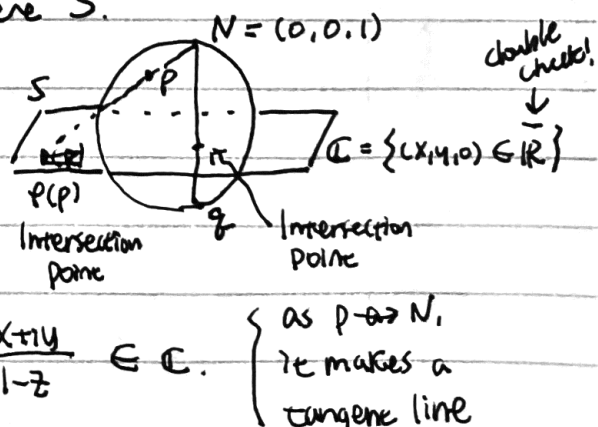 S.
N = (0,0,1)
double
check!
S
p
ℂ = {(x,y,0) ∈ ℝ}
ρ(p)
q
Intersection
point
Intersection
point
x+iy
1-z
∈ ℂ.
as p → N,
it makes a
tangent line